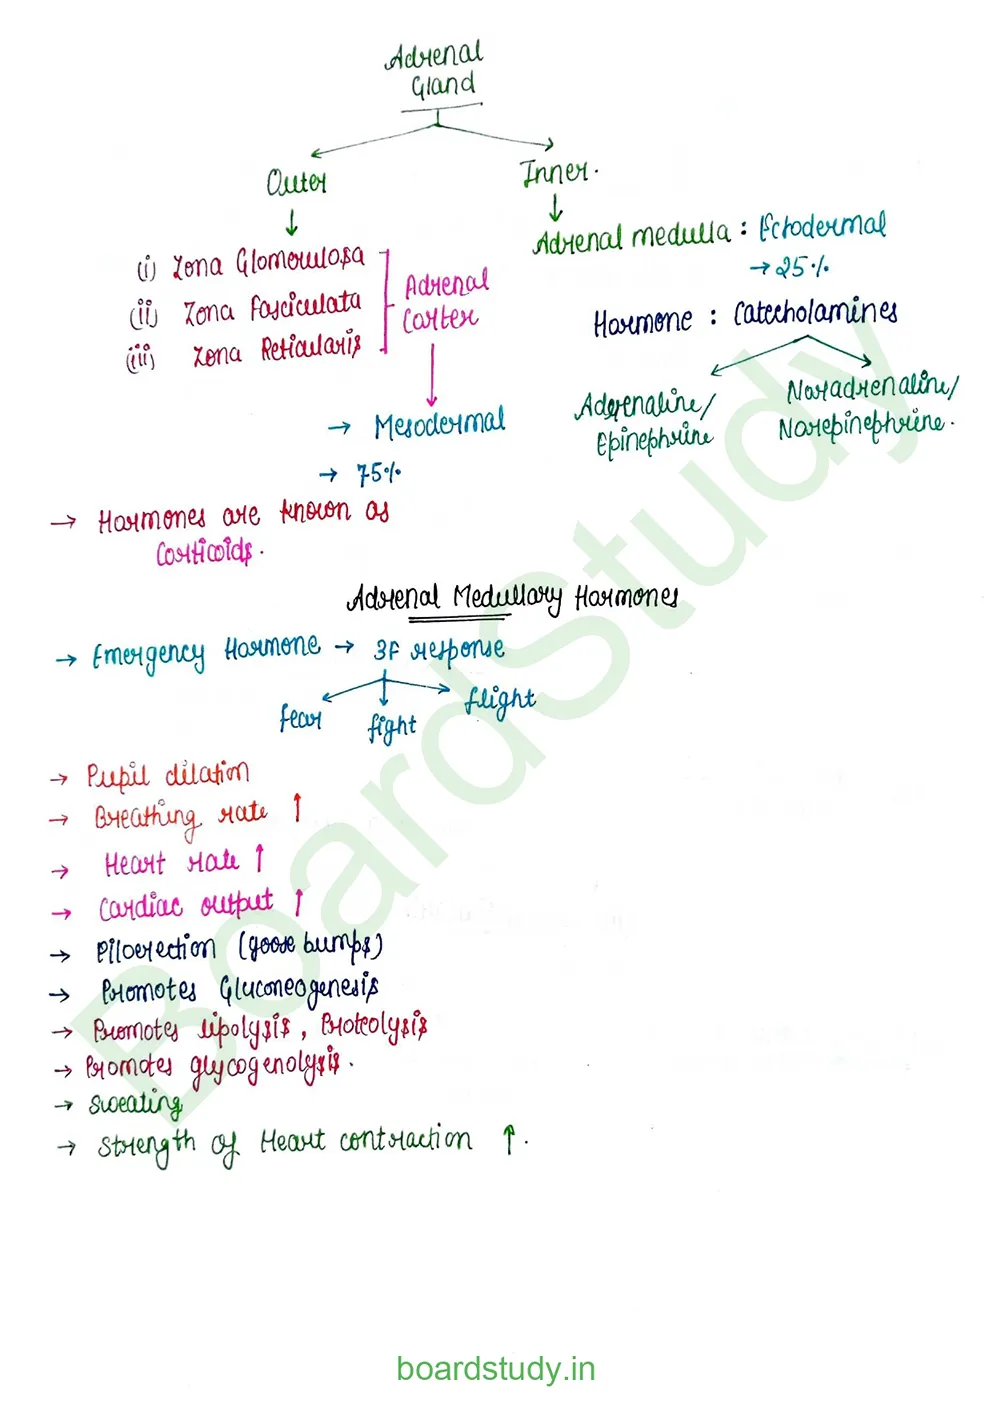 Adrenal
Gland
Outer
Inner.
(i) Zona Glomerulosa
(ii) Zona Fasciculata
(iii) Zona Reticularis
Adrenal
Cortex
→ Mesodermal
→ 75%
→ Hormones are known as
Corticoids.
Adrenal medulla : Ectodermal
→ 25%
Hormone : Catecholamines
Aderenaline/
Epinephrine
Noradrenaline/
Norepinephrine.
Adrenal Medullary Hormones
→ Emergency Hormone → 3F response
fear
fight
flight
→ Pupil dilation
→ Breathing rate ↑
→ Heart rate ↑
→ Cardiac output ↑
→ Piloerection (goose bumps)
→ Promotes Gluconeogenesis
→ Promotes lipolysis, Proteolysis
→ Promotes glycogenolysis.
→ Sweating
→ Strength of Heart contraction ↑.
BoardStudy
boardstudy.in